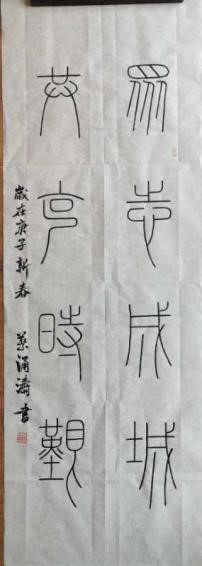 眾志成城
共克時艱
歲在庚子新春 蔡涌濤書